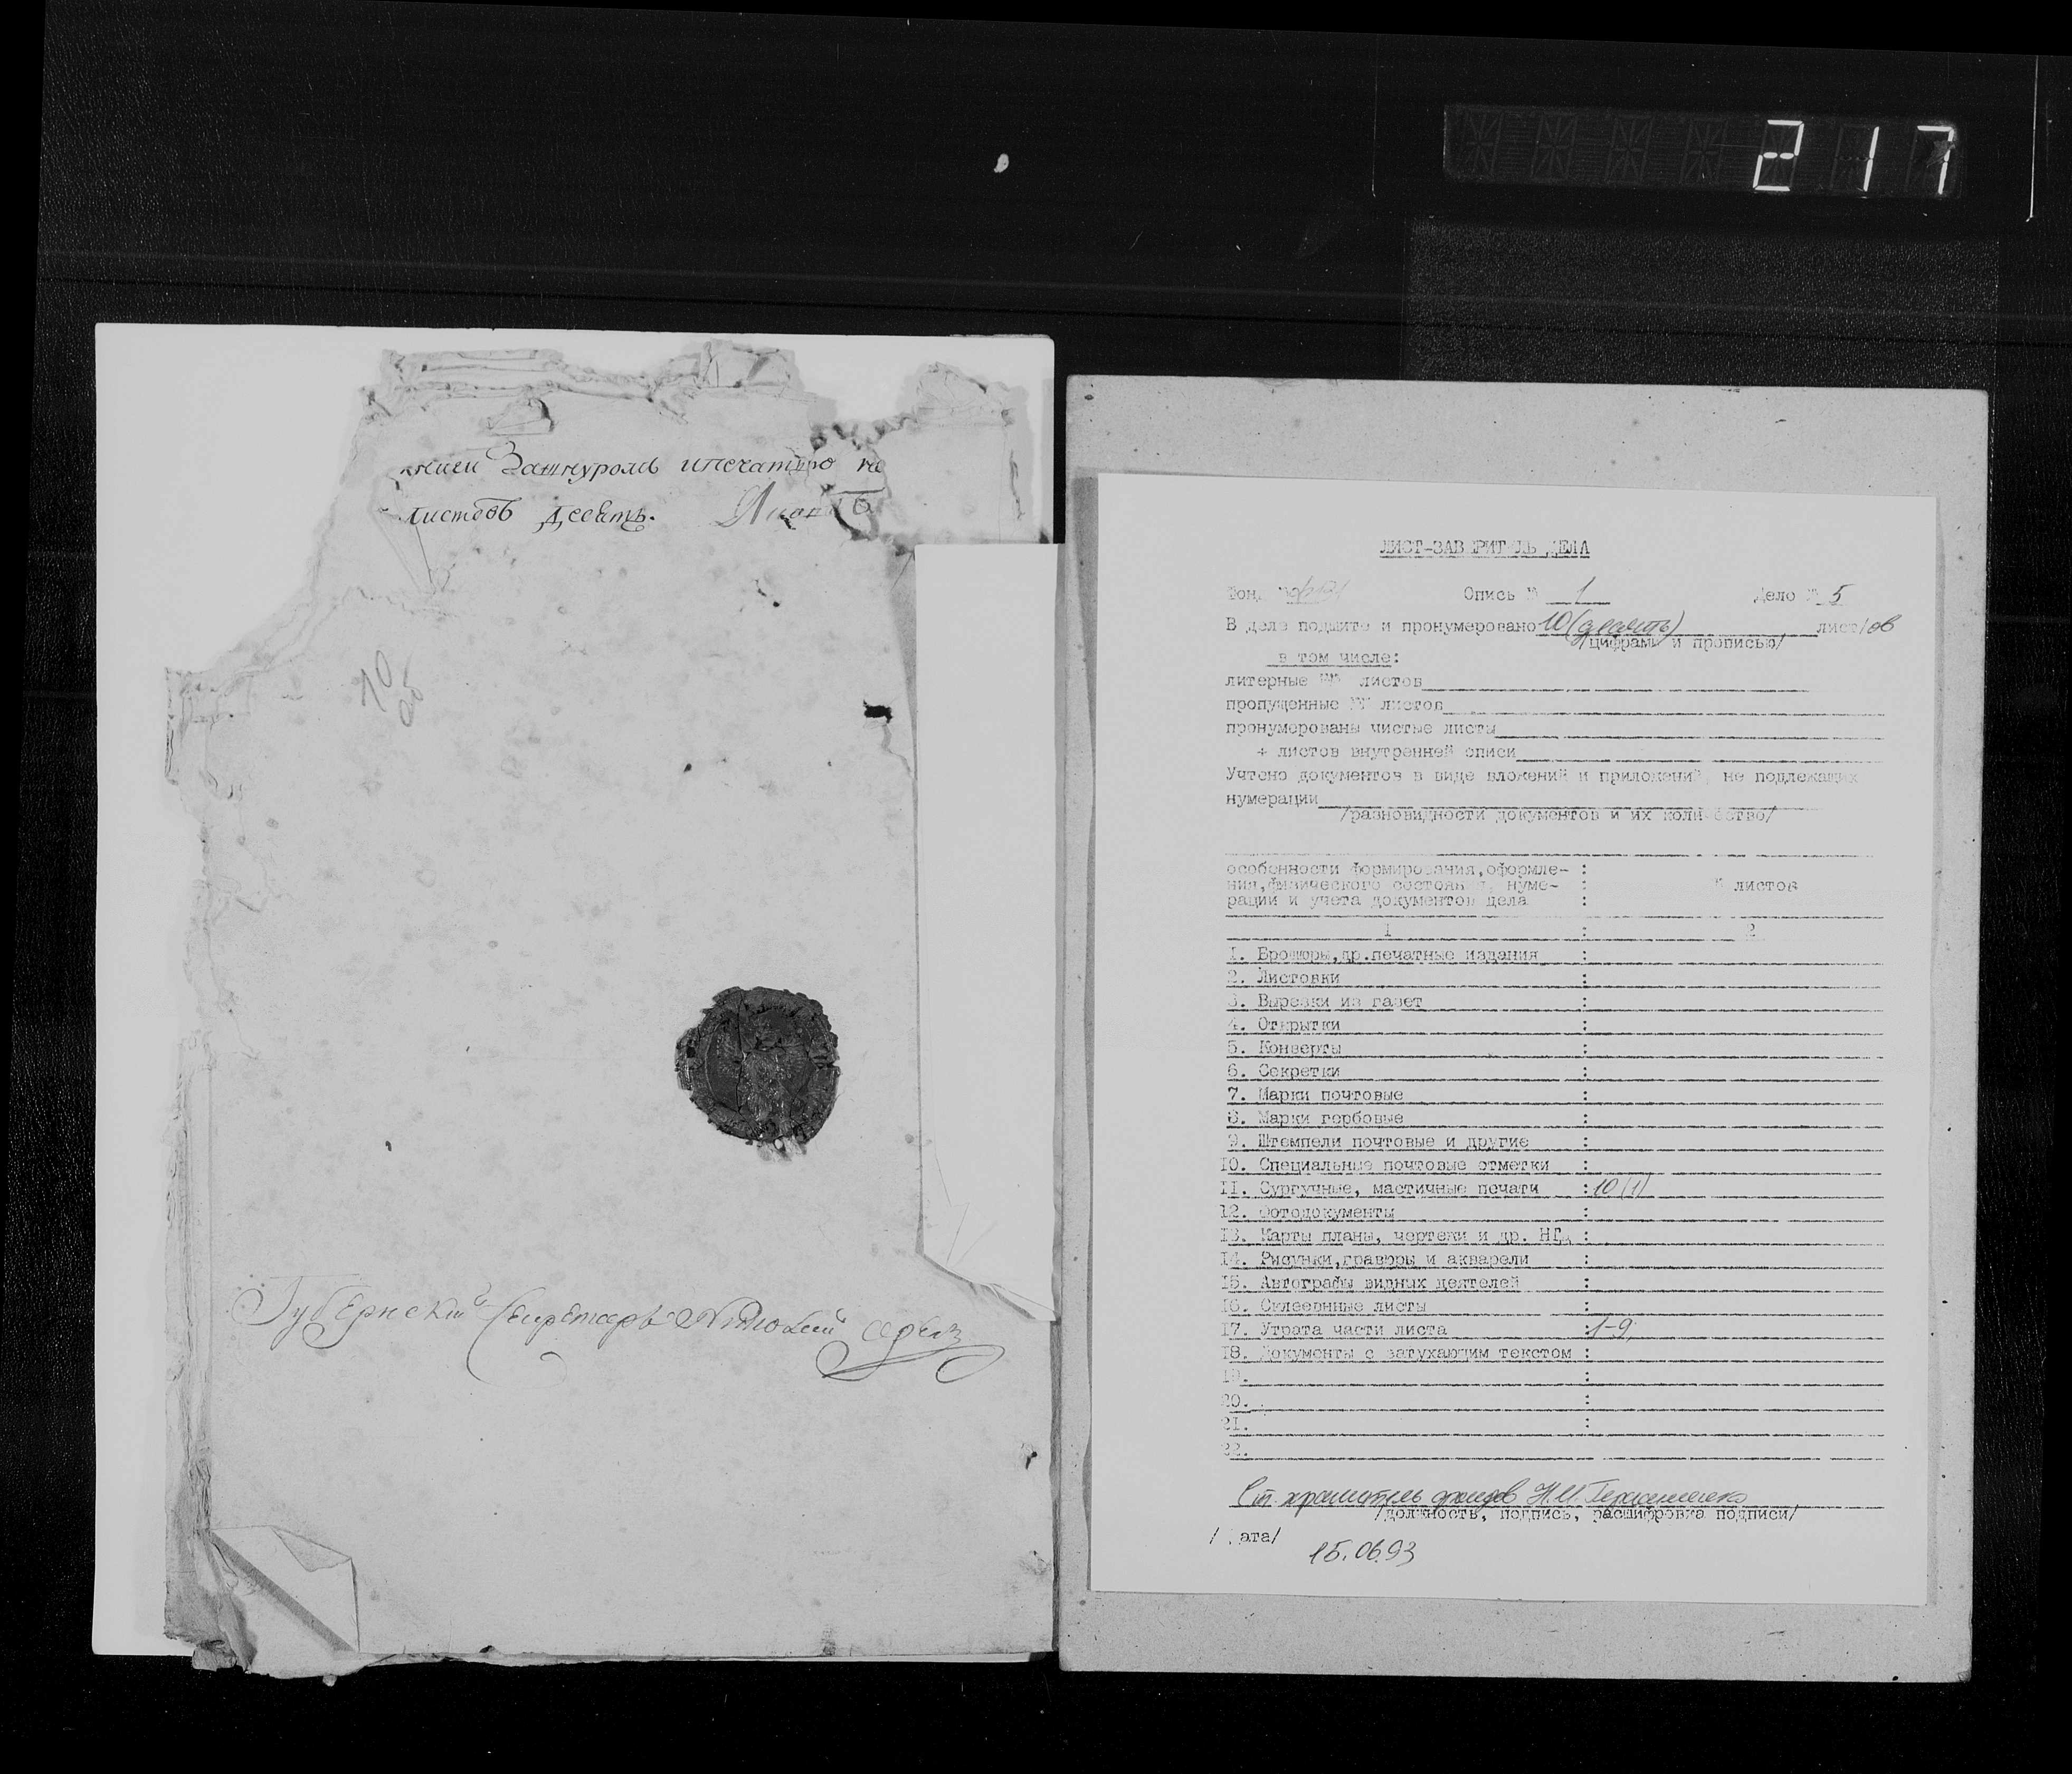 217
книги Зашнуромъ ипечатью
листовъ десять.
10
об
Губернский Секретарь
ЛИСТ-ЗАВЕРИТЕЛЬ ДЕЛА
Фонд № Опись № 1 Дело № 5
В деле подшито и пронумеровано 10 (десять) лист/ов
/цифрами и прописью/
в том числе:
литерные №№ листов
пропущенные №№ листов
пронумерованы чистые листы
+ листов внутренней описи
Учтено документов в виде вложений и приложений, не подлежащих
нумерации
/разновидности документов и их количество/
особенности формирования,оформле- :
ния,физического состояния, нуме- : № листов
рации и учета документов дела :
1 : 2
1. Брошюры,др.печатные издания :
2. Листовки :
3. Вырезки из газет :
4. Открытки :
5. Конверты :
6. Секретки :
7. Марки почтовые :
8. Марки гербовые :
9. Штемпели почтовые и другие :
10. Специальные почтовые отметки :
11. Сургучные, мастичные печати : 10 (1)
12. Фотодокументы :
13. Карты планы, чертежи и др. НТД :
14. Рисунки,гравюры и акварели :
15. Автографы видных деятелей :
16. Склеенные листы :
17. Утрата части листа : 1-9,
18. Документы с затухающим текстом :
19. :
20. :
21. :
22.
Ст. хранитель фондов Н.И. Герасименко
/должность, подпись, расшифровка подписи/
/Дата/
15.06.93